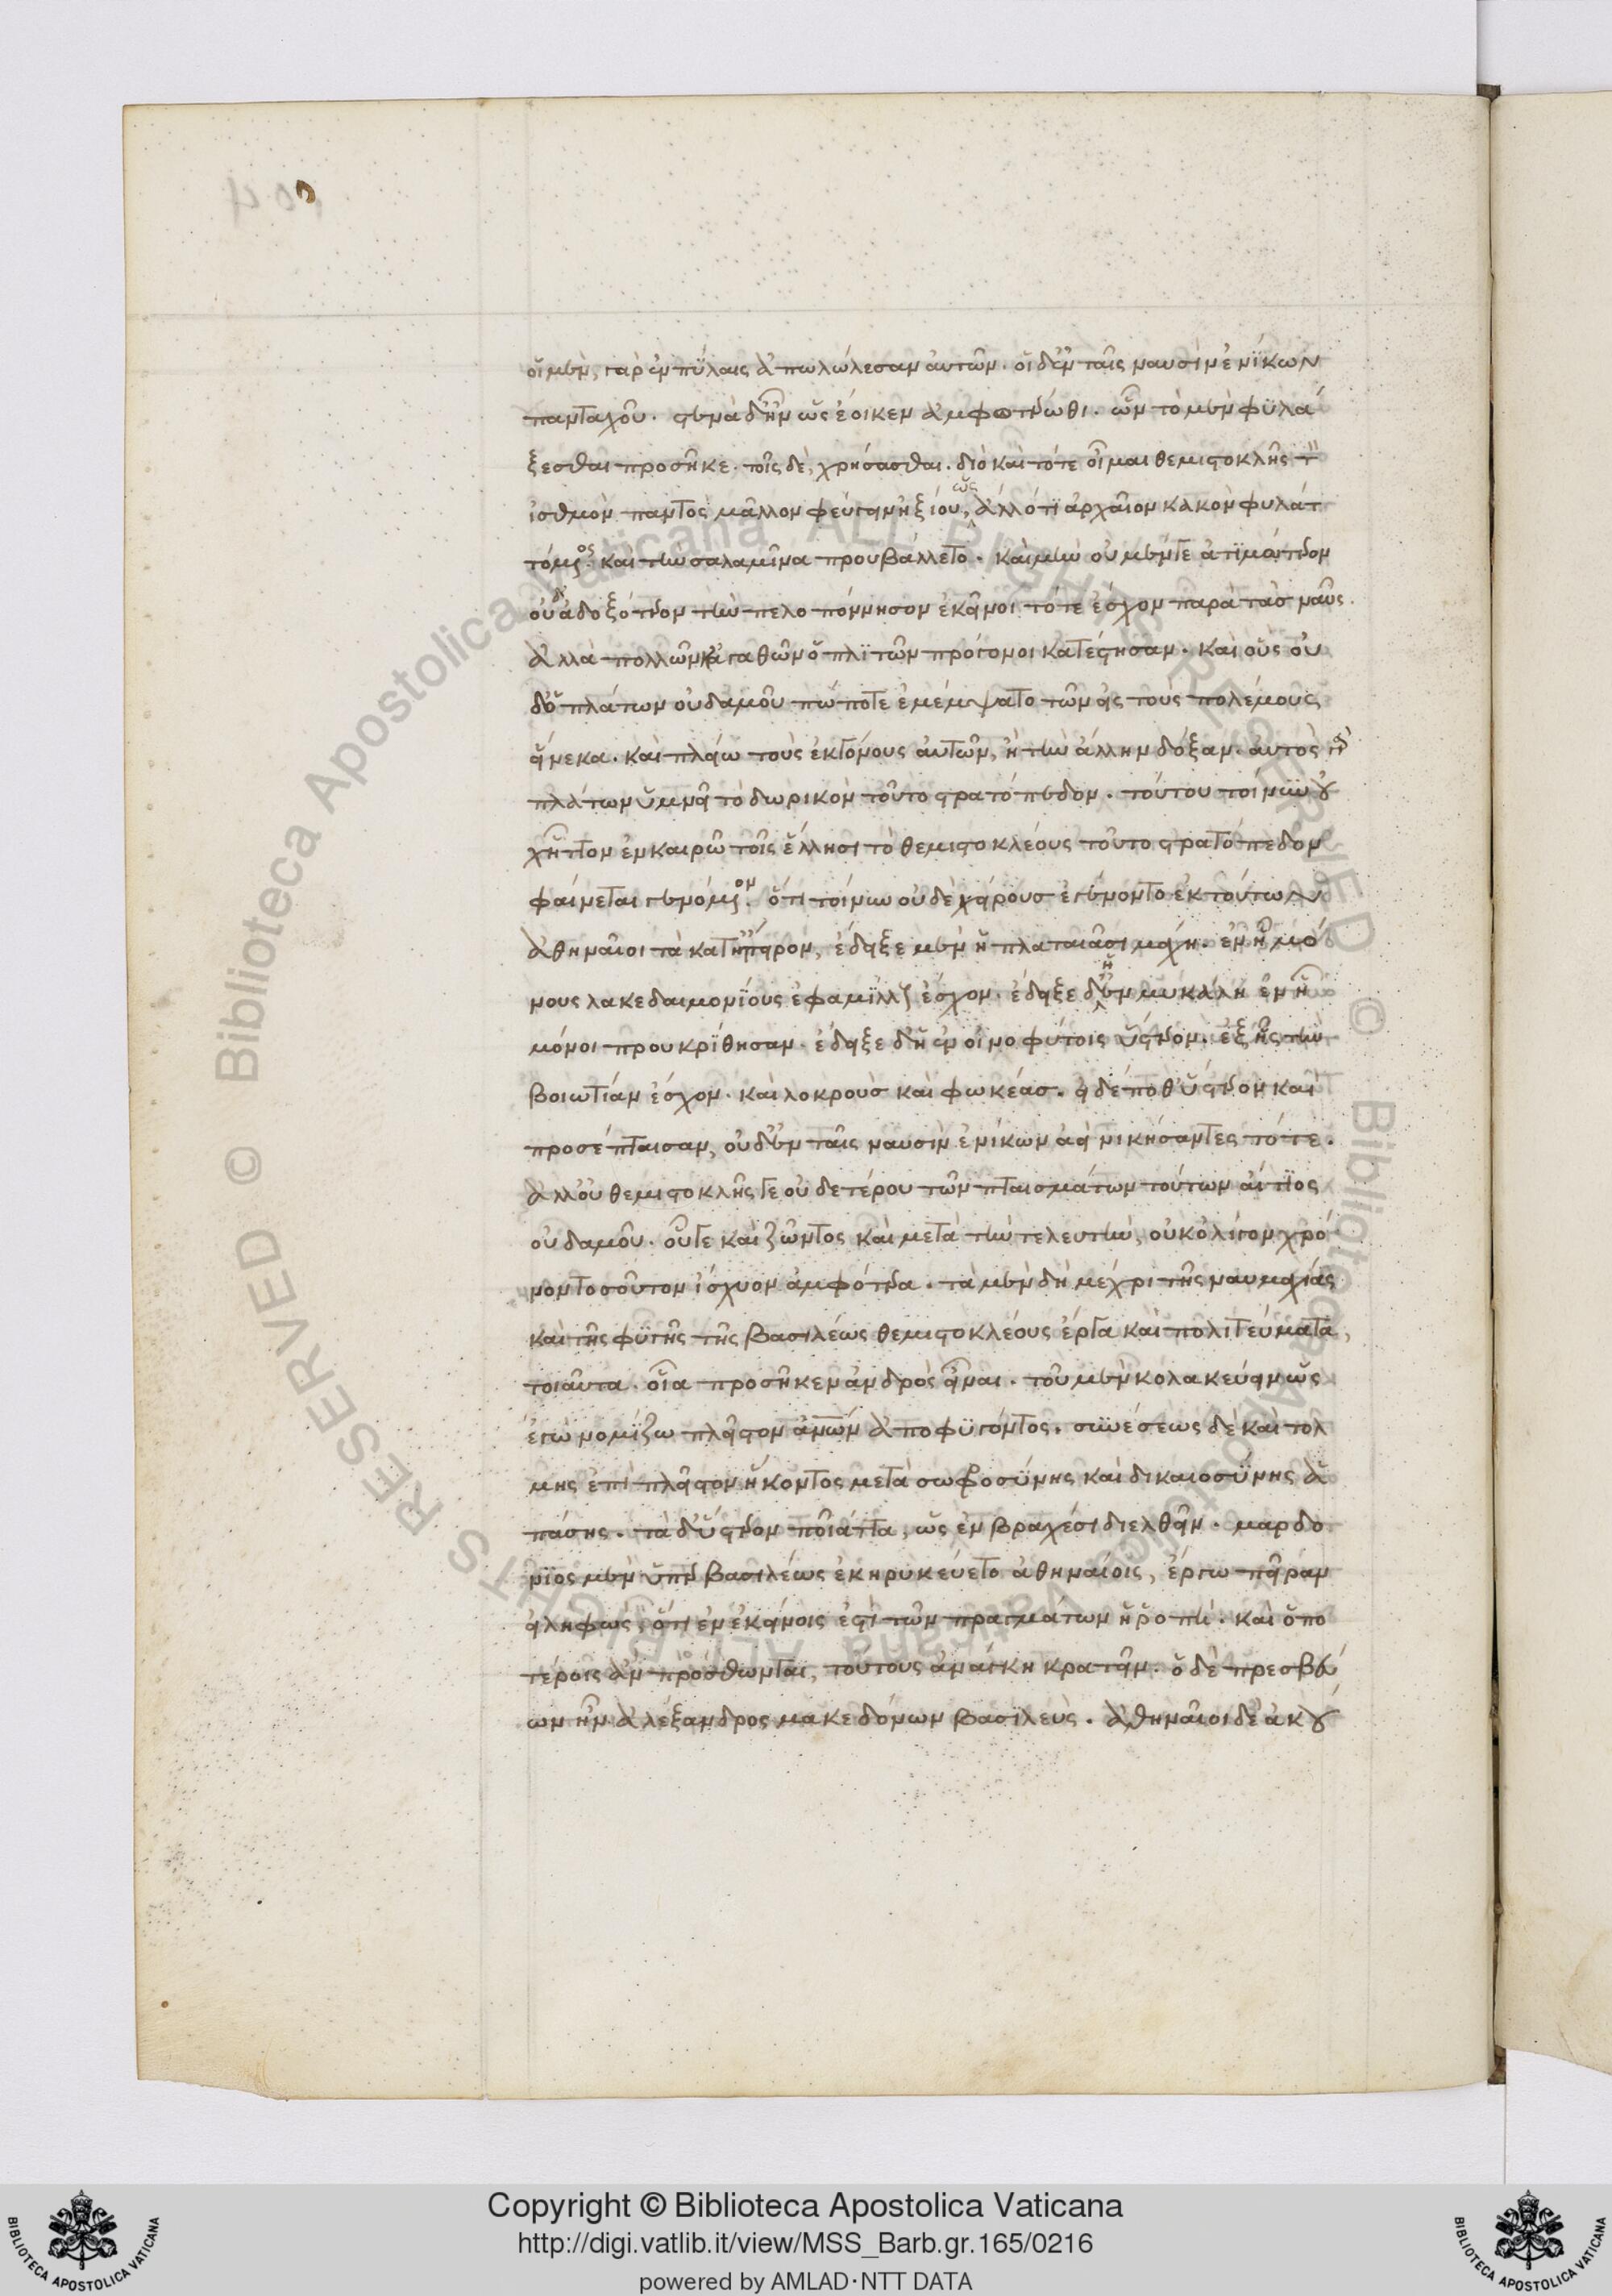 οἱ μὲν γὰρ ἐν πύλαις ἀπωλώλεσαν αὐτῶν· οἱ δ' ἐν ταῖς ναυσὶν ἐνίκων
πανταχοῦ. στενὰ δ' ἦν ὡς ἔοικεν ἀμφοτέρωθι. ὧν τὸ μὲν φυλά
ξεσθαι προσῆκε. τοῖς δὲ, χρήσασθαι. διὸ καὶ τότε οἶμαι θεμιστοκλῆς τὸν
ἰσθμὸν παντὸς μᾶλλον φεύγειν ἠξίου, ὡς ἄλλό τι ἀρχαῖον κακὸν φυλατ
τόμενος. καὶ τὴν σαλαμῖνα προυβάλλετο. καὶ μὴν οὐ μέν γε ἀτιμώτερον
οὐδ' ἀδοξότερον τὴν πελοπόννησον ἐκεῖνοι τότε ἔσχον παρὰ τὰσ ναῦς.
ἀλλὰ πολλῶν κἀγαθῶν ὁπλιτῶν πρόγονοι κατέστησαν. καὶ οὓς οὐ
δ' ὁ πλάτων οὐδαμοῦ πώποτε ἐμέμψατο τῶν εἰς τοὺς πολέμους
εἵνεκα. καὶ πλείω τοὺς ἐκγόνους αὐτῶν, ἢ τὴν ἄλλην δόξαν. αὐτὸς
πλάτων ὑμνεῖ τὸ δωρικὸν τοῦτο στρατόπεδον. τούτου τοίνυν οὐ
χ' ἧττον ἐν καιρῶ τοῖς ἕλλησι τὸ θεμιστοκλέους τοῦτο στρατόπεδον
φαίνεται γενόμενον. ὅτι τοίνυν οὐδὲ χείρουσ ἐγένοντο ἐκ τούτων
ἀθηναῖοι τὰ κατ' ἤπειρον, ἔδειξε μὲν ἡ πλαταιᾶσι μάχη. ἐν ἧ μό
νους λακεδαιμονίους ἐφαμίλλους ἔσχον. ἔδειξε δ' ἡ ἐν μυκάλη ἐν ἧ
μόνοι προυκρίθησαν. ἔδειξε δ' ἡ ἐν οἰνοφύτοις ὕστερον. ἐξ ἧς τὴν
βοιωτίαν ἔσχον. καὶ λοκρουσ καὶ φωκέασ. εἰ δέ ποθ' ὕστερον καὶ
προσέπταισαν, οὐδ' ἐν ταῖς ναυσὶν ἐνίκων ἀεὶ νικήσαντες πότε.
ἀλλ' οὐ θεμιστοκλῆς γε οὐδετέρου τῶν πταισμάτων τούτων αἴτιος
οὐδαμοῦ. οὗ γε καὶ ζῶντος καὶ μετὰ τὴν τελευτὴν, οὐκ ὀλίγον χρό
νον τοσοῦτον ἴσχυον ἀμφότερα. τὰ μὲν δὴ μέχρι τῆς ναυμαχίας
καὶ τῆς φυγῆς τῆς βασιλέως θεμιστοκλέους ἔργα καὶ πολιτεύματα,
τοιαῦτα. οἷα προσῆκεν ἀνδρὸς εἶναι. τοῦ μὲν κολακεύειν ὡς
ἐγὼ νομίζω πλεῖστον ἀνθρώπων ἀποφυγόντος. συνέσεως δὲ καὶ τολ
μης ἐπὶ πλεῖστον ἥκοντος μετὰ σωφροσύνης καὶ δικαιοσύνης ἁ
πάσης. τὰ δ' ὕστερον ποῖ' ἄττα, ὡς ἐν βραχέσι διελθεῖν. μαρδο
νιος μὲν ὑπὲρ βασιλέως ἐκηρυκεύετο ἀθηναίοις, ἔργω πεῖραν
εἰληφώς, ὅτι ἐν ἐκείνοις ἐστὶ τῶν πραγμάτων ἡ ῥοπή. καὶ ὁπο
τέροις ἂν πρόσθωνται, τούτους ἀνάγκη κρατεῖν. ὁ δὲ πρεσβεύ
ων ἦν ἀλέξανδρος μακεδόνων βασιλεὺς. ἀθηναῖοι δὲ ἀκού
Copyright © Biblioteca Apostolica Vaticana
http://digi.vatlib.it/view/MSS_Barb.gr.165/0216
powered by AMLAD·NTT DATA